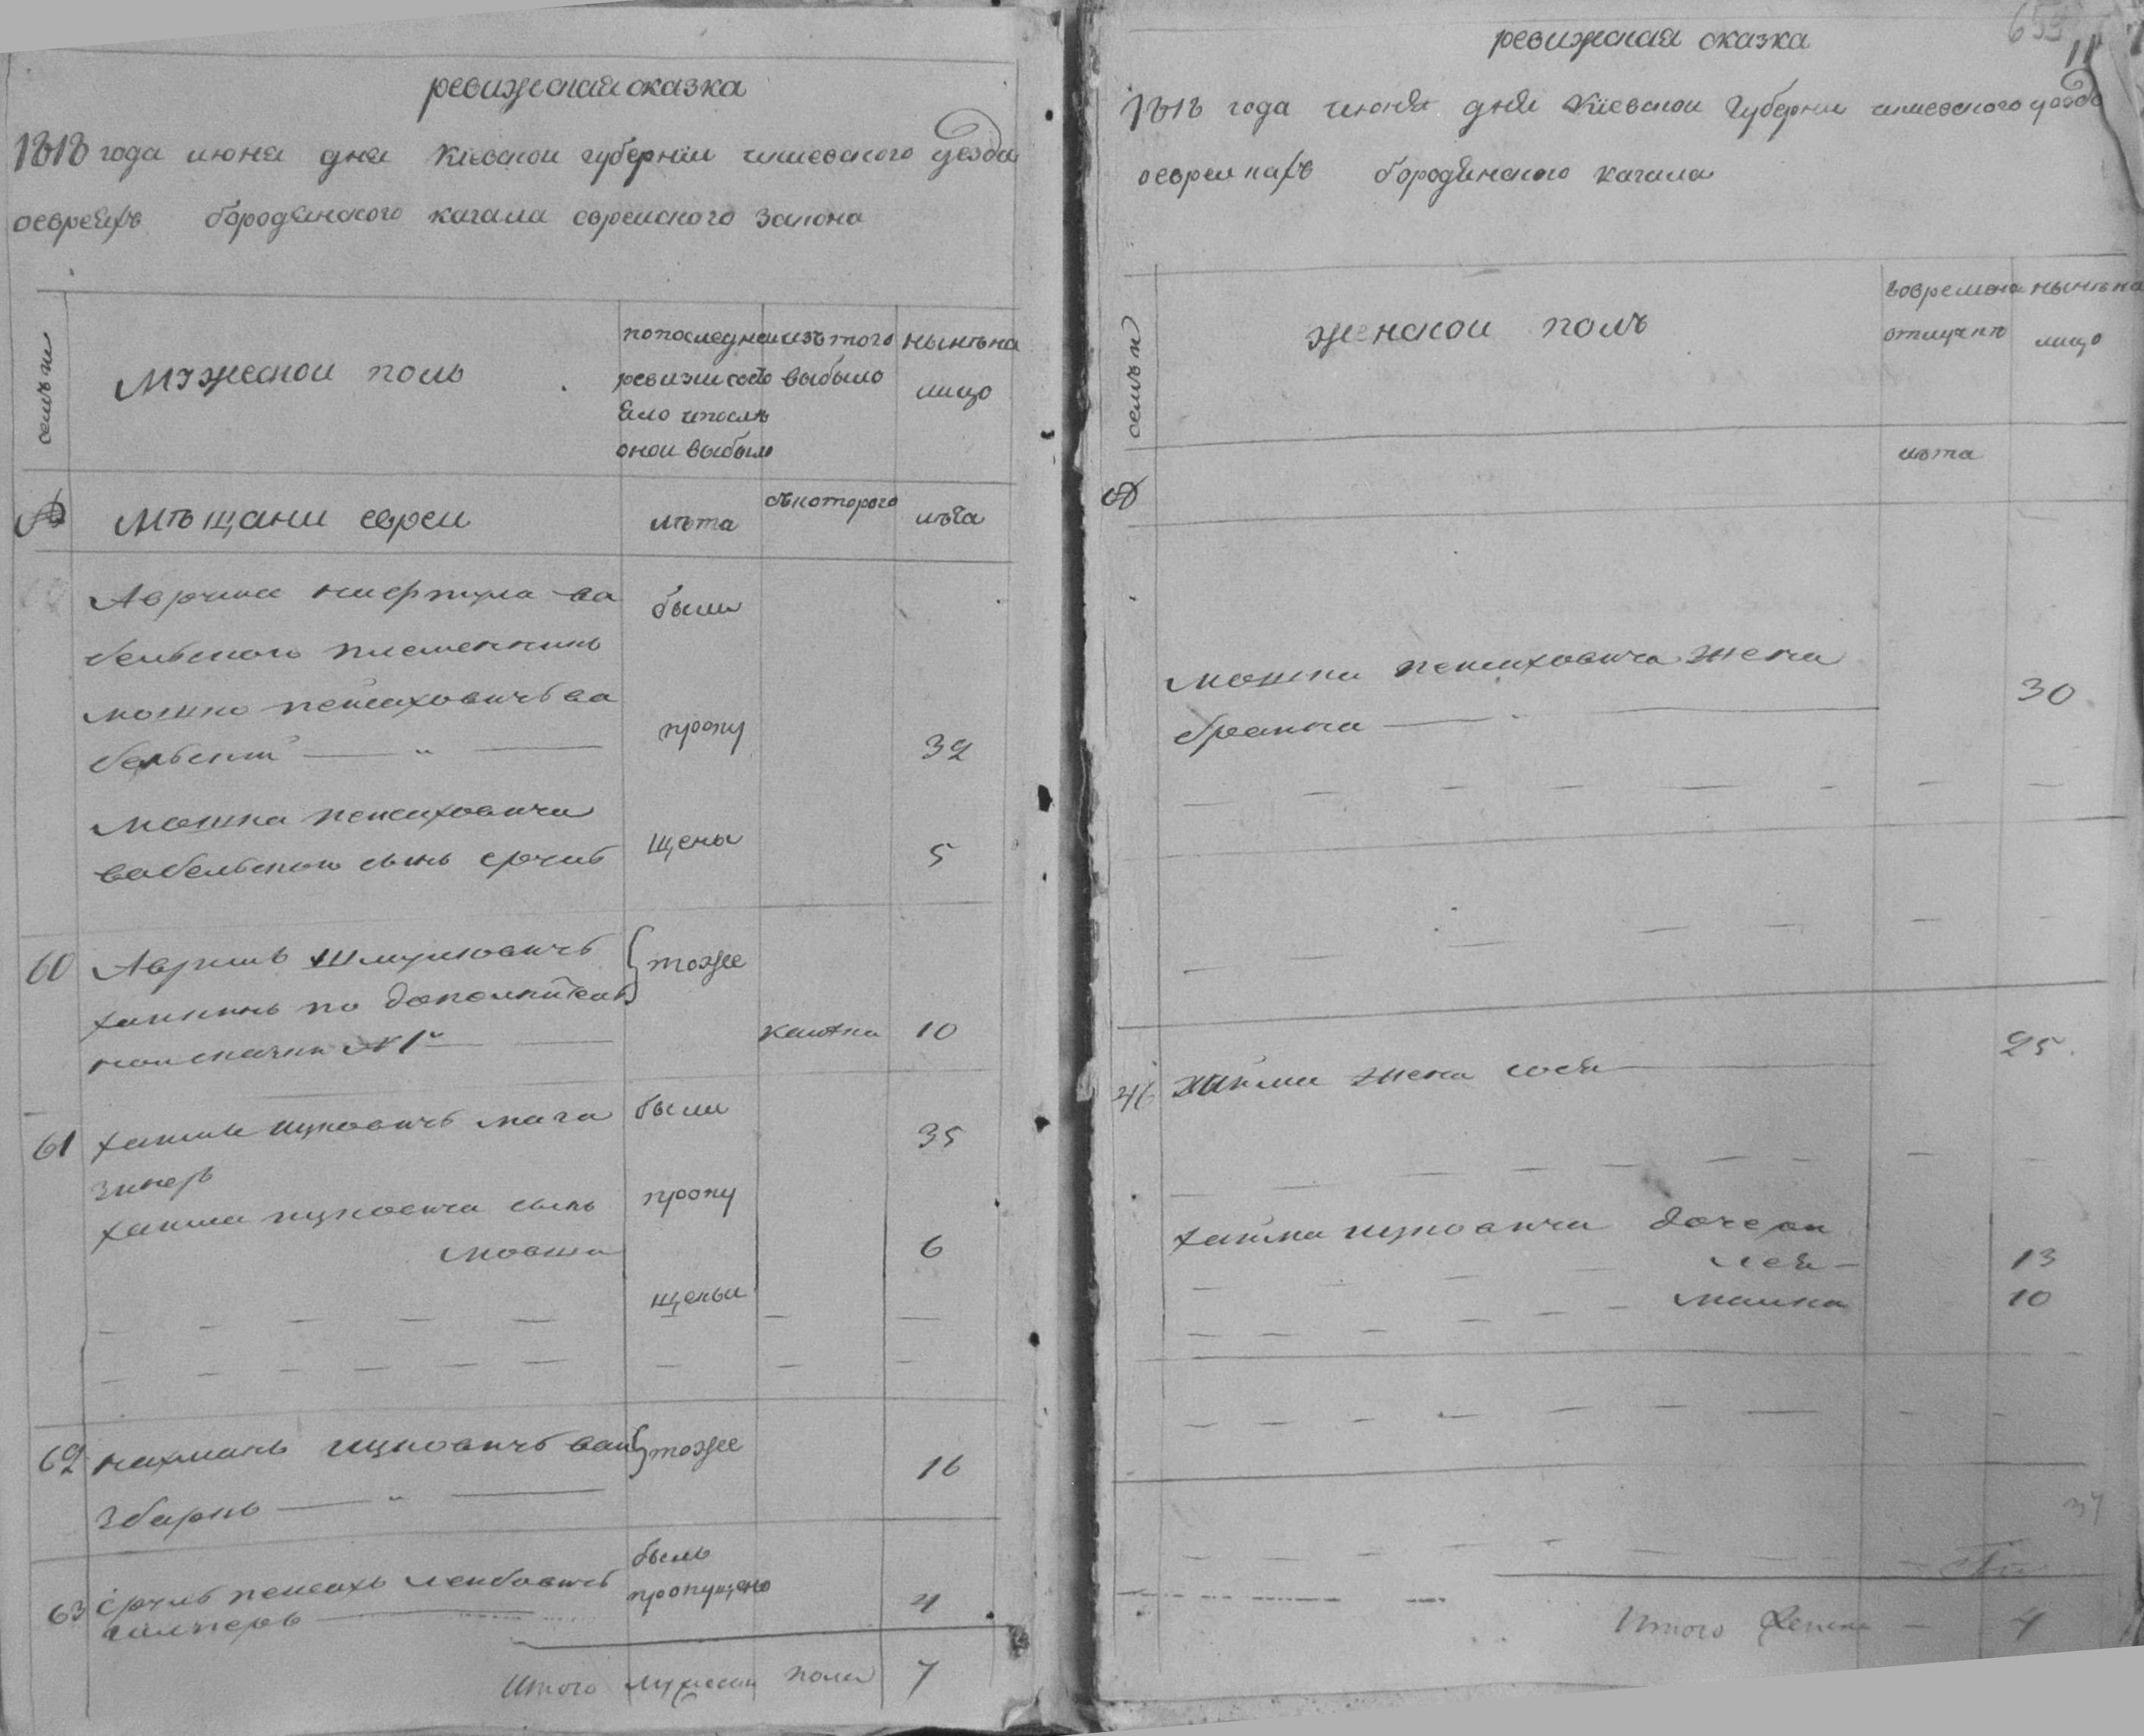 ревижская сказка
1818 года июня дня Киевской губернии киевского уезда
оевреяхъ бородянского кагала еврейского закона
семьи
Мужеской полъ
по последнеи
ревизии состо
яло и после
оной выбыло
изъ того
выбыло
ныне на
лицо
№
Мѣщани евреи
лѣта
съ которого
лѣта
были
бельского племенникъ
мошко пейсаховичъ ва
бельский — " —
пропу
32
Мошка пейсаховича
вабельского сынъ срулъ
щены
5
60
Аврумъ Шмулиовичъ
тоже
по дополнител
ной скаски № 1й
10
61
хаимъ ицковичъ мага
зинеръ
были
35
хаима ицковича сынъ
мовша
пропу
6
щены
62
нахманъ ицковичъ вай
збаръ — " —
тоже
16
63
срулъ пейсахъ лейбовичъ
былъ
пропущенъ
4
Итого мужеска пола 7
ревижская сказка
659
11
1818 года июня дня Киевской губернии киевского уезда
оеврейкахъ бородянского кагала
семьи
женской полъ
вовременной
отлучке
ныне на
лицо
лѣта
№
Мошка пейсаховича жена
30
46
хайма жена сося
25
хайма ицковича дочери
лея —
13
малка
10
Итого женска — 4